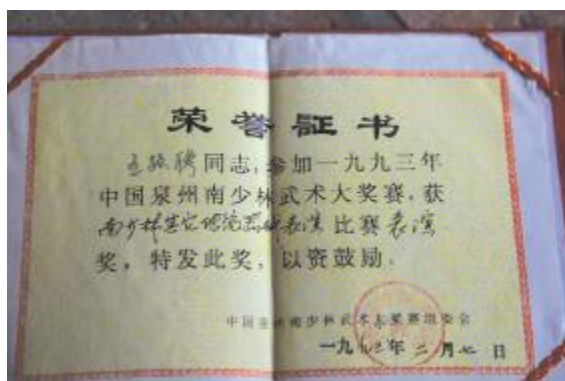 荣誉证书
同志,参加一九九三年
中国泉州南少林武术大奖赛,获
南少林其它传统器械表演比赛表演
奖,特发此奖,以资鼓励。
中国泉州南少林武术大奖赛组委会
一九九三年二月七日